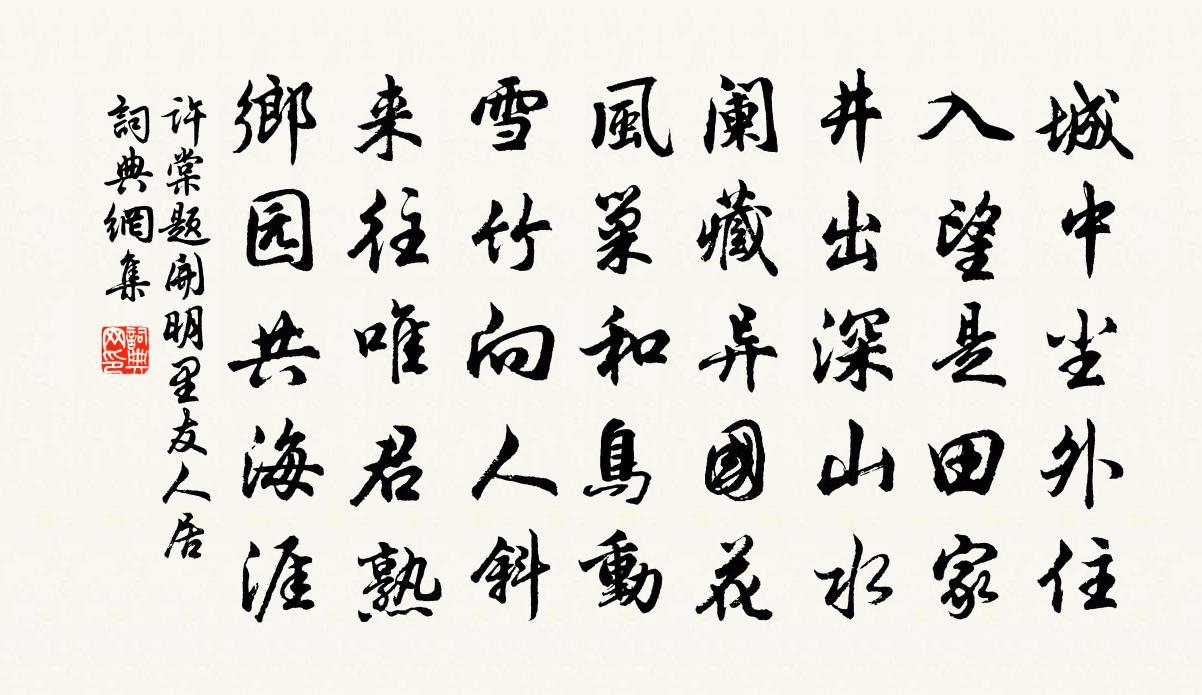 城中坐外住
入望是田家
井出深山水
阑藏异國花
風巢和鳥動
雪竹向人斜
来往唯君熟
鄉园共海涯
许棠题開明里友人居
詞典網集
詞典网印